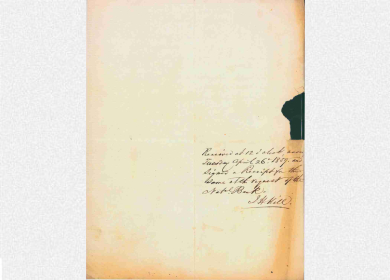 Received at 12 o'clock noon
Tuesday April 26th 1859 and
signed a Receipt for the
same at the request of the
Natl. Bank.
J. W. Hill